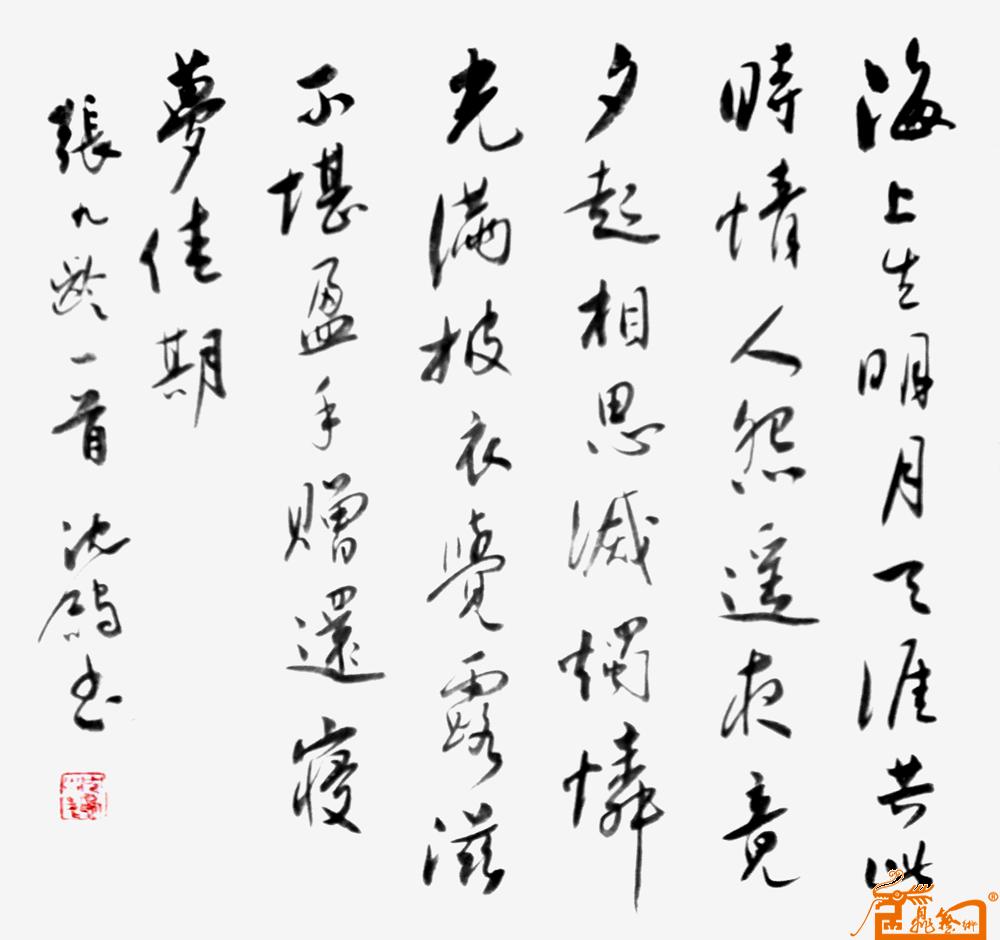 海上生明月天涯共此
時情人怨遥夜竟
夕起相思滅燭憐
光滿披衣覺露滋
不堪盈手贈還寝
夢佳期
張九齡一首 沈鹏书